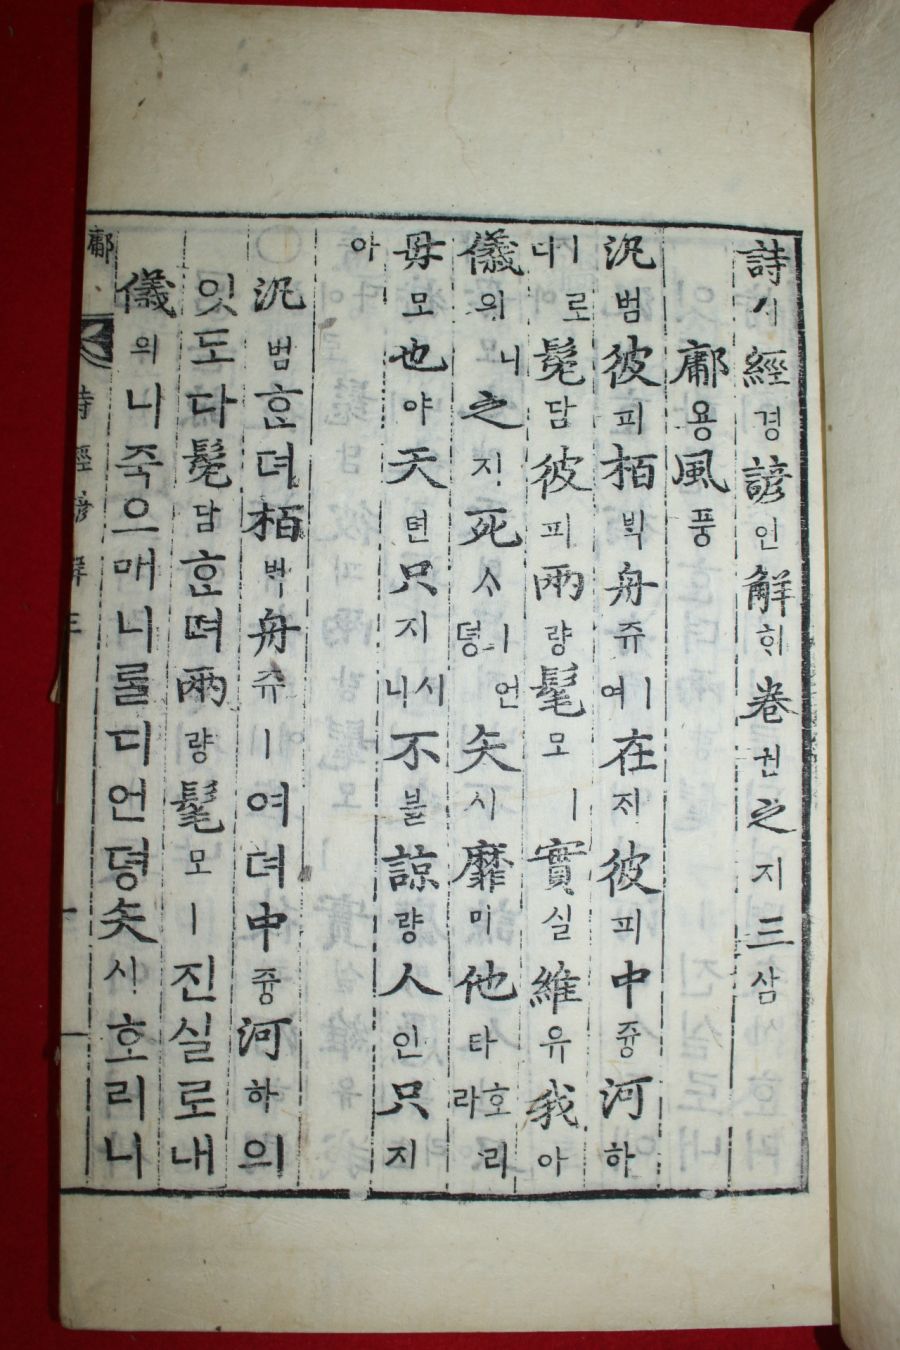 詩시經경諺언解ᄒᆡ卷권之지三삼
鄘용風풍
汎범彼피栢ᄇᆡᆨ舟쥬ㅣ여在ᄌᆡ彼피中즁河하
ㅣ로다髧담彼피兩량髦모ㅣ實실維유我아
儀의니之지死ᄉᆞㅣ언뎡矢시靡미他타호리라
母모也야天텬只지시니不블諒량人인只지
아
汎범ᄒᆞᆫ뎌栢ᄇᆡᆨ舟쥬ㅣ여뎌中즁河하의
잇도다髧담ᄒᆞᆫ뎌兩량髦모ㅣ진실로내
儀의니죽으매니를디언뎡矢시호리니
鄘 詩經諺解 三